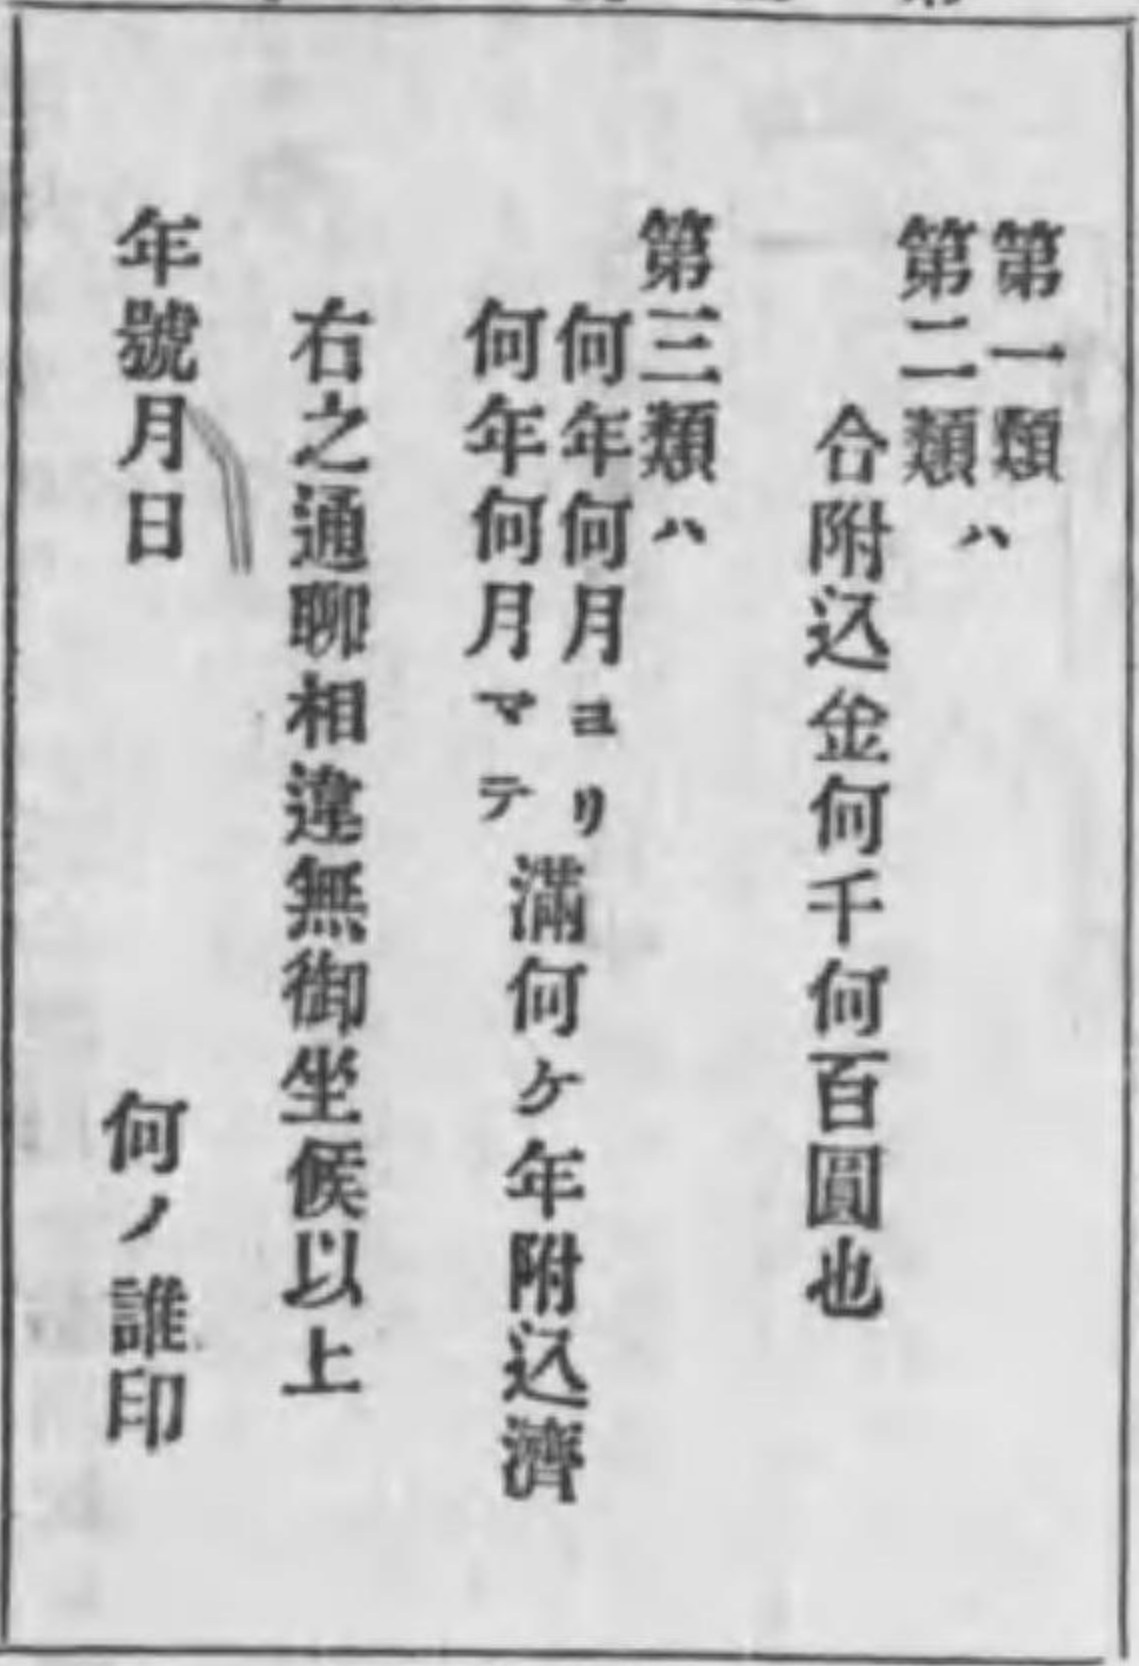 第一類
第二類ハ
合附込金何千何百圓也
第三類ハ
何年何月ヨリ
何年何月マテ
滿何ケ年附込濟
右之通聊相違無御坐候以上
年號月日
何ノ誰印